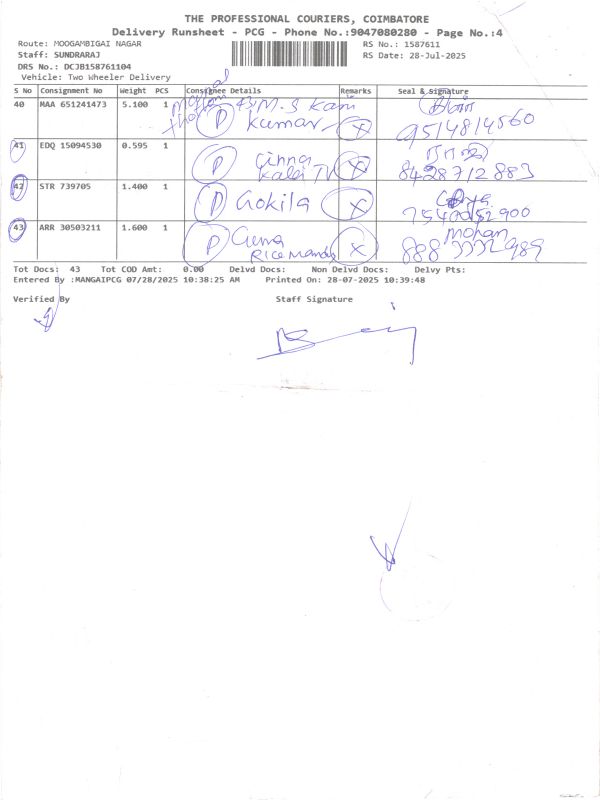 THE PROFESSIONAL COURIERS, COIMBATORE
Delivery Runsheet - PCG - Phone No.:9047080280 - Page No.:4
Route: MOOGAMBIGAI NAGAR RS No.: 1587611
Staff: SUNDRARAJ RS Date: 28-Jul-2025
DRS No.: DCJB158761104
Vehicle: Two Wheeler Delivery
S No Consignment No Weight PCS Consignee Details Remarks Seal & Signature
40 MAA 651241473 5.100 1 P M.S Kani
Kumar X 9514814560
41 EDQ 15094530 0.595 1 P Cinna
Kalai TV X 8428712883
42 STR 739705 1.400 1 P Gokila X
43 ARR 30503211 1.600 1 P Guna X Mohan
Rice Mandi
Tot Docs: 43 Tot COD Amt: 0.00 Delvd Docs: Non Delvd Docs: Delvy Pts:
Entered By :MANGAIPCG 07/28/2025 10:38:25 AM Printed On: 28-07-2025 10:39:48
Verified By Staff Signature